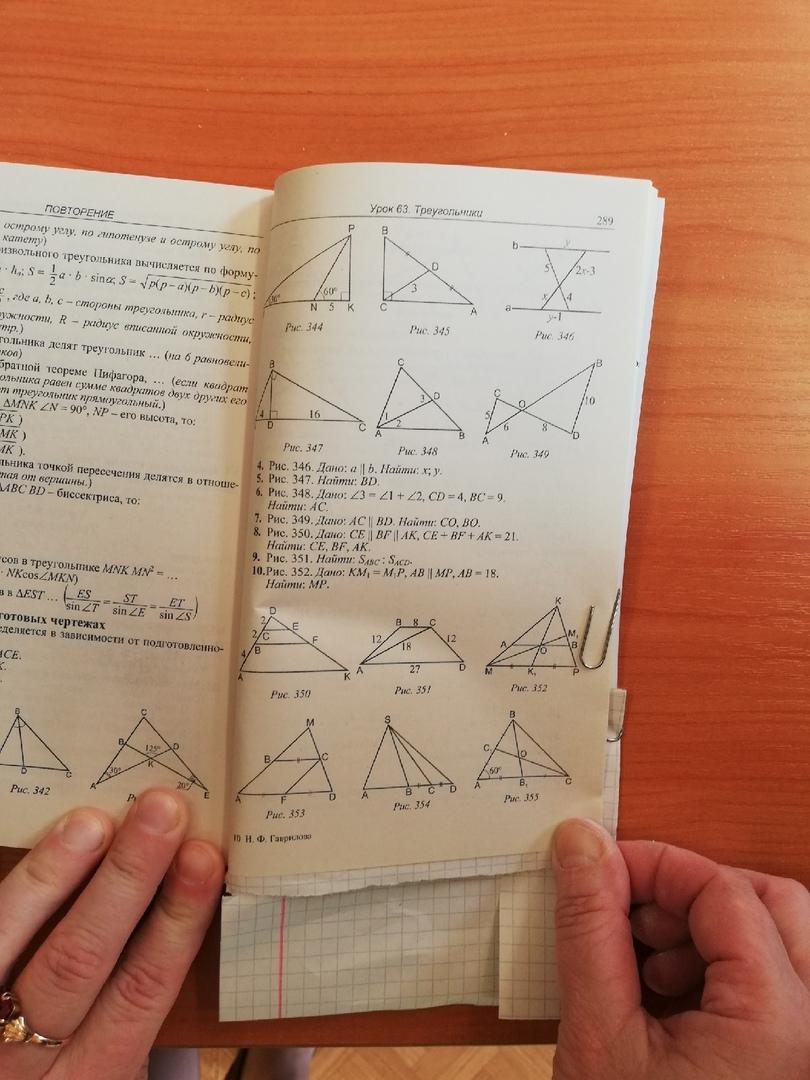 ПОВТОРЕНИЕ
острому углу, по гипотенузе и острому углу, по
катету)
извольного треугольника вычисляется по форму-
S = 1/2 a · b · sinα; S = √p(p – a)(p – b)(p – c);
, где a, b, c – стороны треугольника, r – радиус
ружности, R – радиус вписанной окружности,
тр.)
гольника делят треугольник … (на 6 равновели-
ков)
братной теореме Пифагора, … (если квадрат
ольника равен сумме квадратов двух других его
от треугольник прямоугольный.)
ΔMNK ∠N = 90°, NP – его высота, то:
PK )
MK )
MK ).
льника точкой пересечения делятся в отноше-
тая от вершины.)
ΔABC BD – биссектриса, то:
усов в треугольнике MNK MN² = …
· NKcos∠MKN)
в ΔEST … (ES/sin∠T = ST/sin∠E = ET/sin∠S)
готовых чертежах
еделяется в зависимости от подготовленно-
ACE.
B
D
C
Рис. 342
C
B
D
125°
K
30°
20°
A
E
Урок 63. Треугольники
289
P
30°
60°
N
5
K
Рис. 344
B
D
3
C
A
Рис. 345
b
y
5
2x-3
x
4
a
y-1
Рис. 346
B
4
16
D
C
Рис. 347
C
3
D
1
2
A
B
Рис. 348
B
C
O
10
5
6
8
A
D
Рис. 349
4. Рис. 346. Дано: a || b. Найти: x; y.
5. Рис. 347. Найти: BD.
6. Рис. 348. Дано: ∠3 = ∠1 + ∠2, CD = 4, BC = 9.
Найти: AC.
7. Рис. 349. Дано: AC || BD. Найти: CO, BO.
8. Рис. 350. Дано: CE || BF || AK, CE + BF + AK = 21.
Найти: CE, BF, AK.
9. Рис. 351. Найти: S_ABC : S_ACD.
10. Рис. 352. Дано: KM₁ = M₁P, AB || MP, AB = 18.
Найти: MP.
D
2
E
2
C
F
B
4
A
K
Рис. 350
B
8
C
12
18
12
A
27
D
Рис. 351
K
M₁
A
B
O
M
K₁
P
Рис. 352
M
B
C
A
F
D
Рис. 353
S
A
B
C
D
Рис. 354
B
C
O
60°
A
B₁
C
Рис. 355
10 Н. Ф. Гаврилова